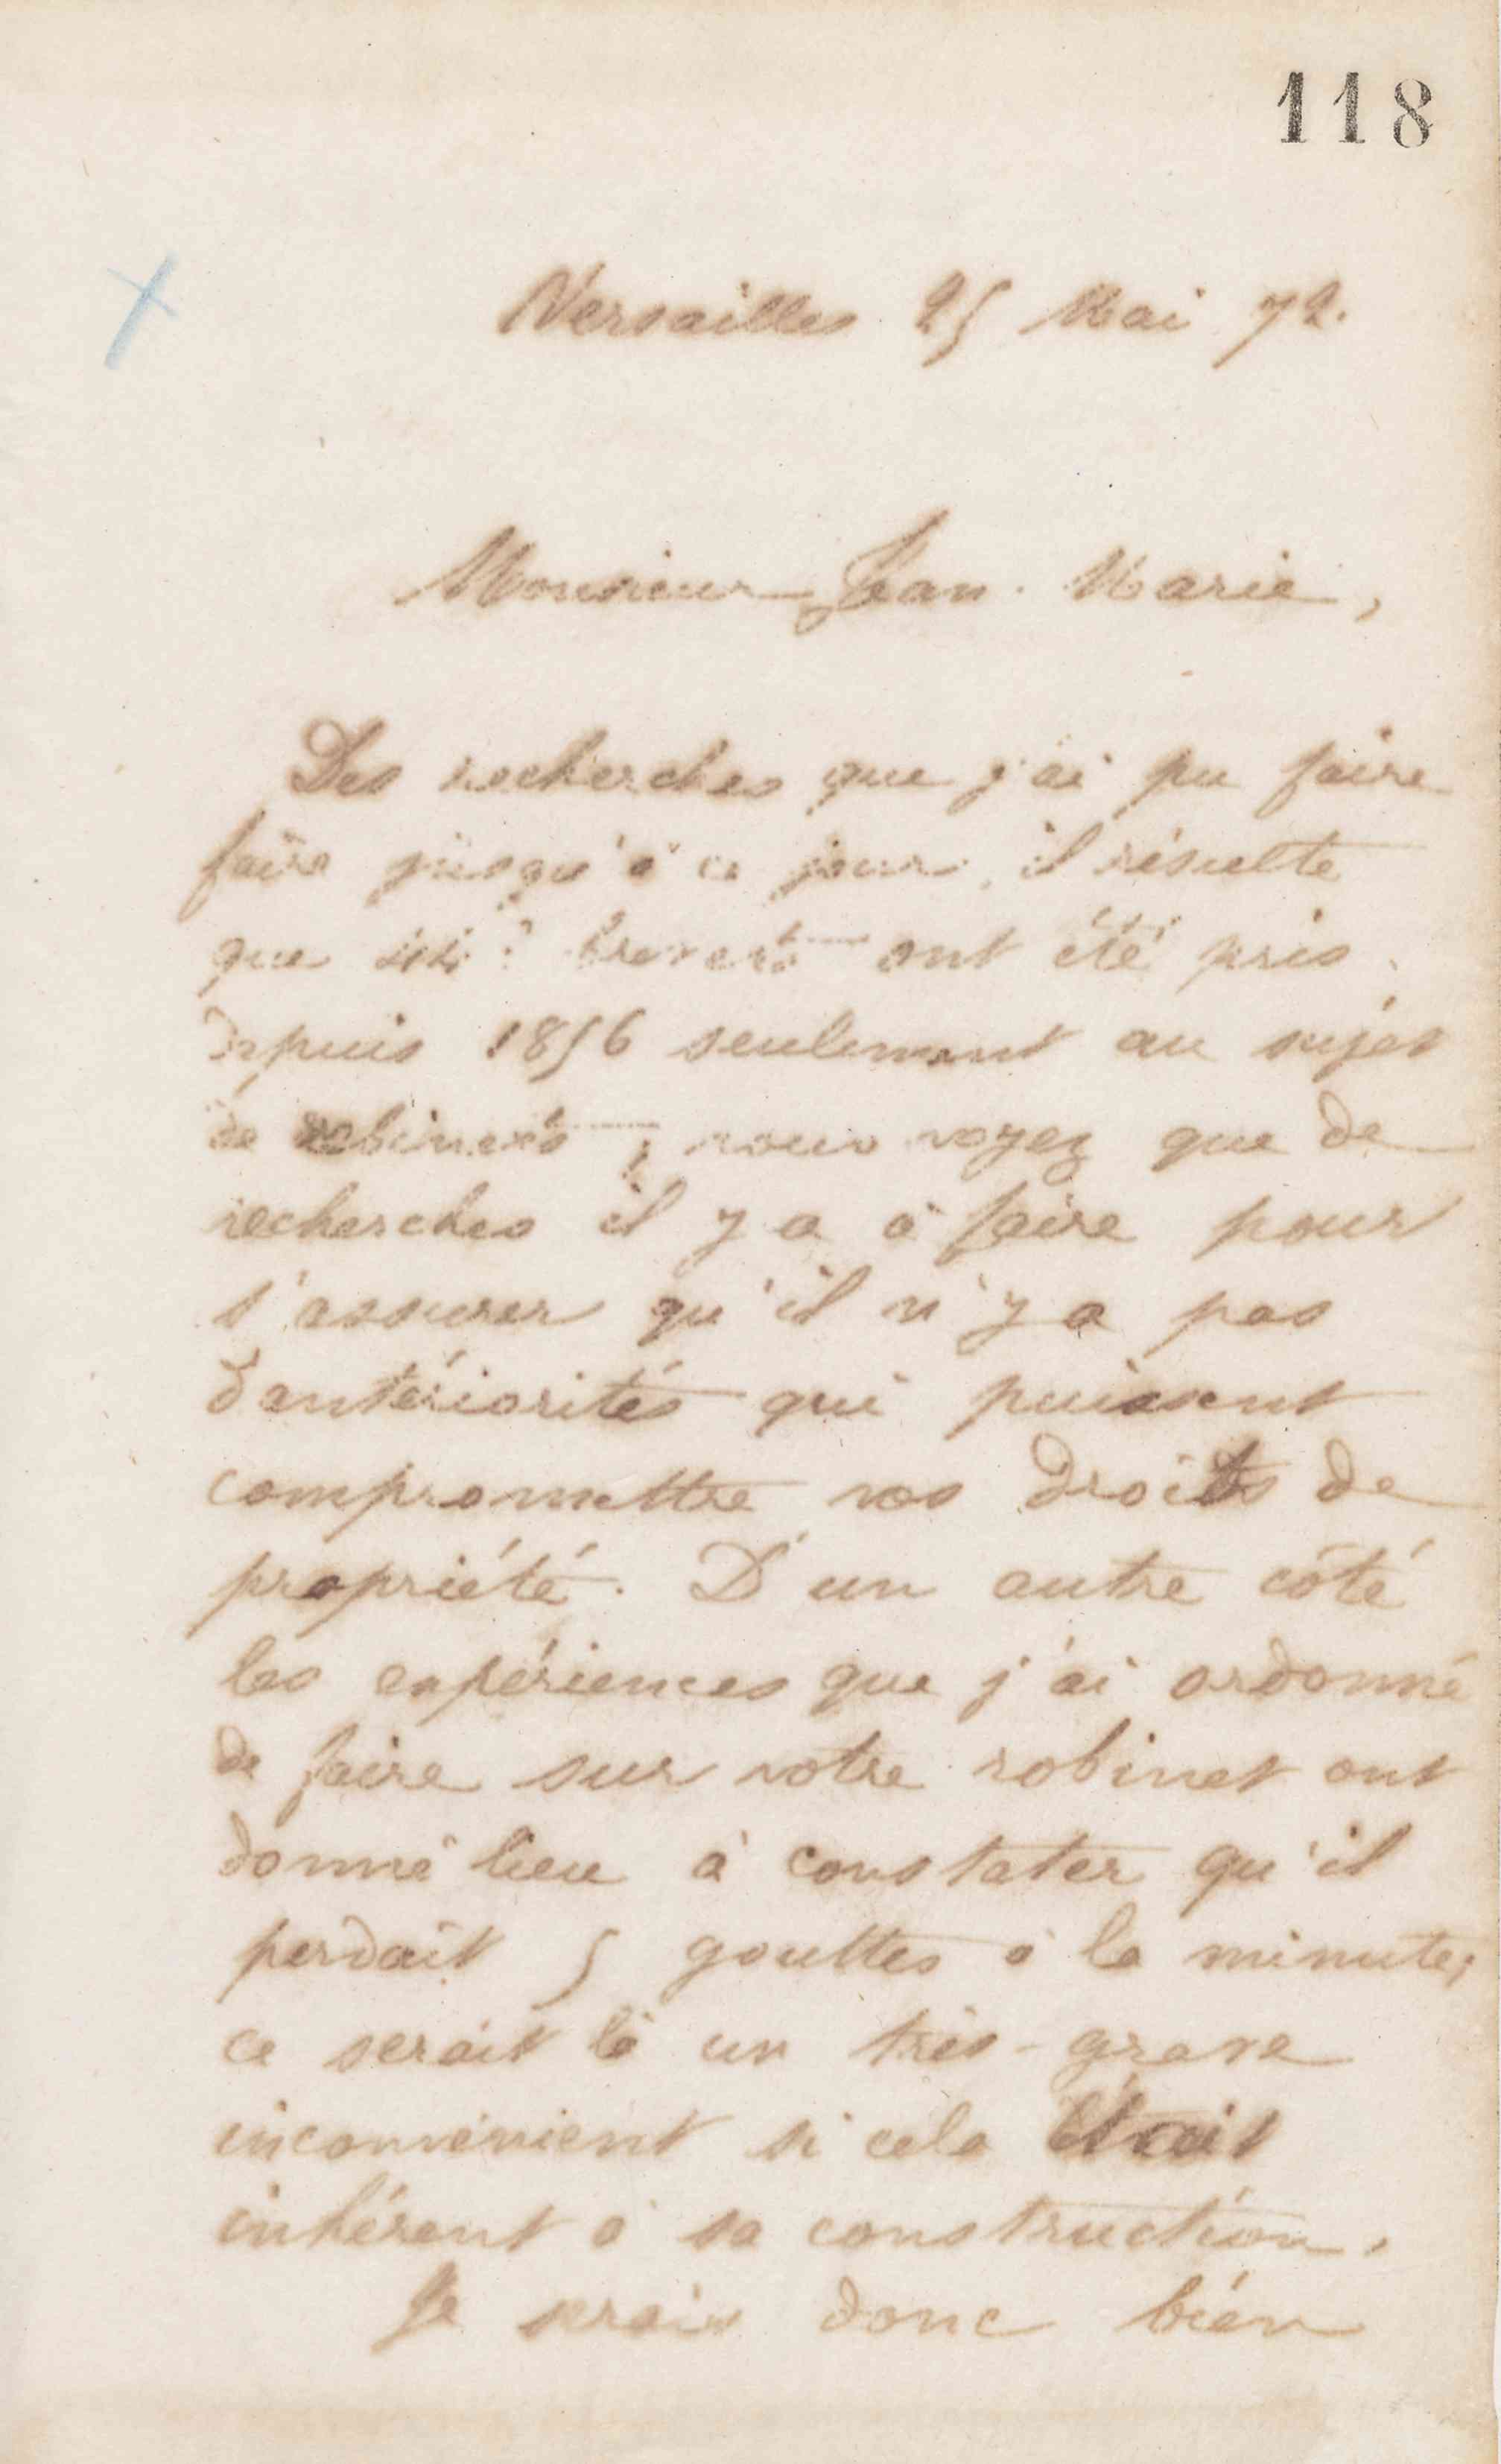 118
Versailles 25 Mai 72.
Monsieur Jean-Marie,
Des recherches que j'ai pu faire
faire jusqu'à ce jour, il résulte
que brevets ont été pris
depuis 1856 seulement au sujet
de robinets, vous voyez que de
recherches il y a à faire pour
s'assurer qu'il n'y a pas
d'antériorités qui puissent
compromettre vos droits de
propriété. D'un autre côté
les expériences que j'ai ordonné
de faire sur votre robinet ont
donné lieu à constater qu'il
perdait 5 gouttes à la minute;
ce serait là un très-grave
inconvénient si cela était
inhérent à sa construction.
Je serais donc bien